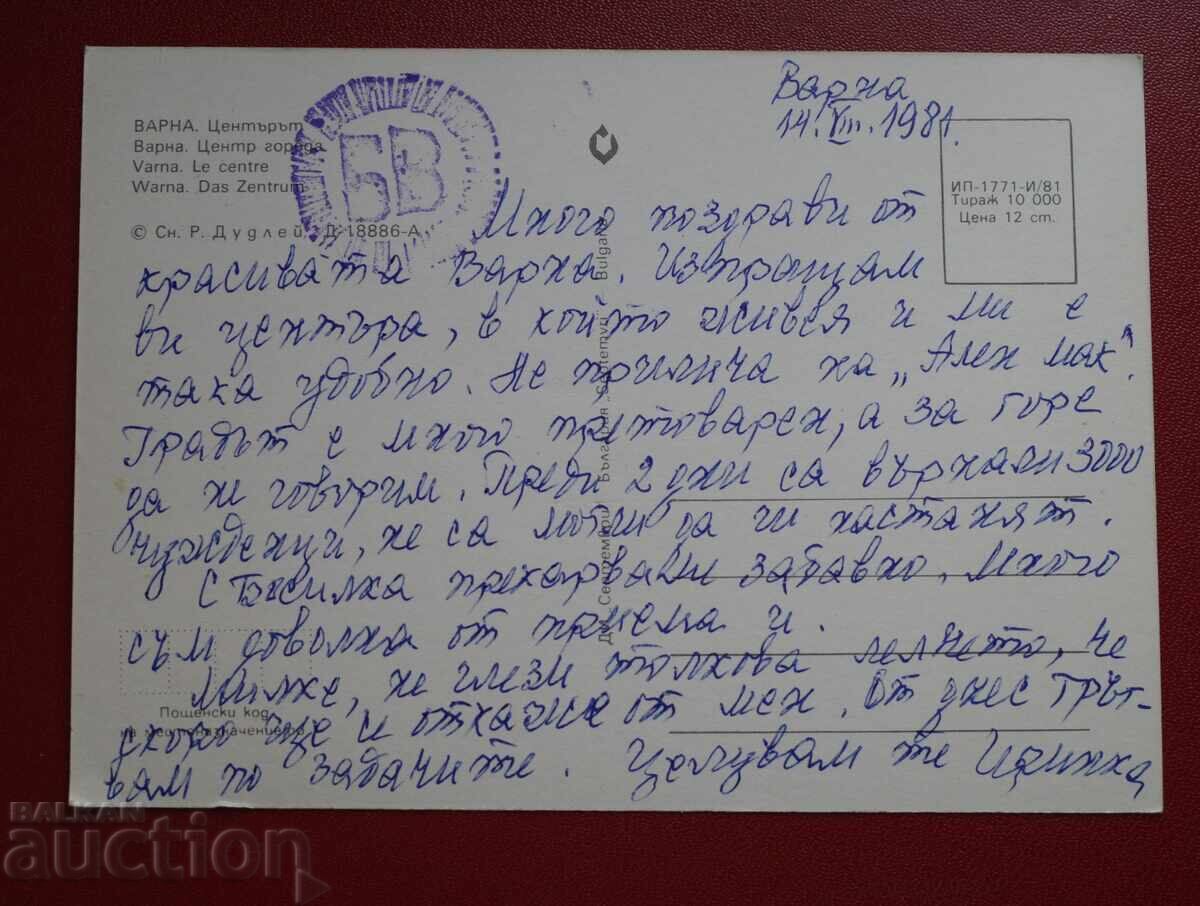 Варна
14.VIII.1981.
ВАРНА. Центърът
Варна. Центр города
Varna. Le centre
Warna. Das Zentrum
© Сн. Р. Дудлей Д-18886-А
БВ
ИП-1771-И/81
Тираж 10 000
Цена 12 ст.
Много поздрави от
красивата Варна. Изпращам
ви центъра, в който живея и ми е
така удобно. Не прилича на „Ален мак".
Градът е много претоварен, а за горе
да не говорим. Преди 2 дни са върнали 3000
чужденци, не са могли да ги настанят.
С Василка прекарваме забавно. Много
съм доволна от приема и.
Милке, не глези толкова лелчето, че
скоро ще и откажа от мен. От днес тръг-
вам по задачите. Целувам те
Пощенски код
на местоназначението
ДИ „Септември" България „Septemvri" Bulgaria
BALKAN
auction